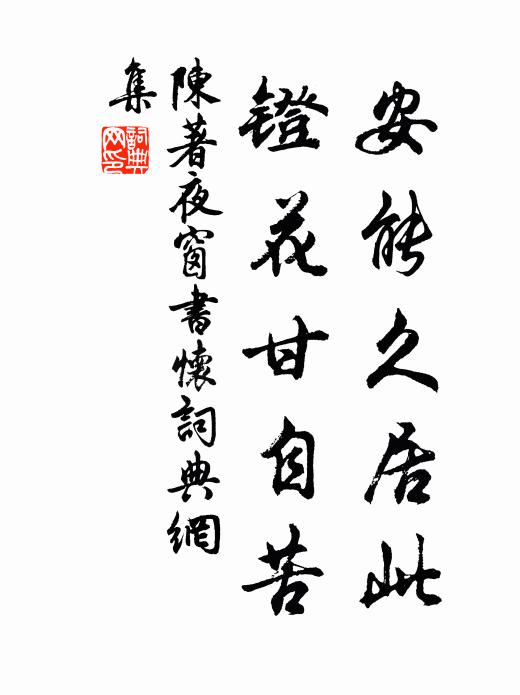 安能久居此
镫花甘自苦
陳著夜窗書懷詞典網
集
詞典
网印